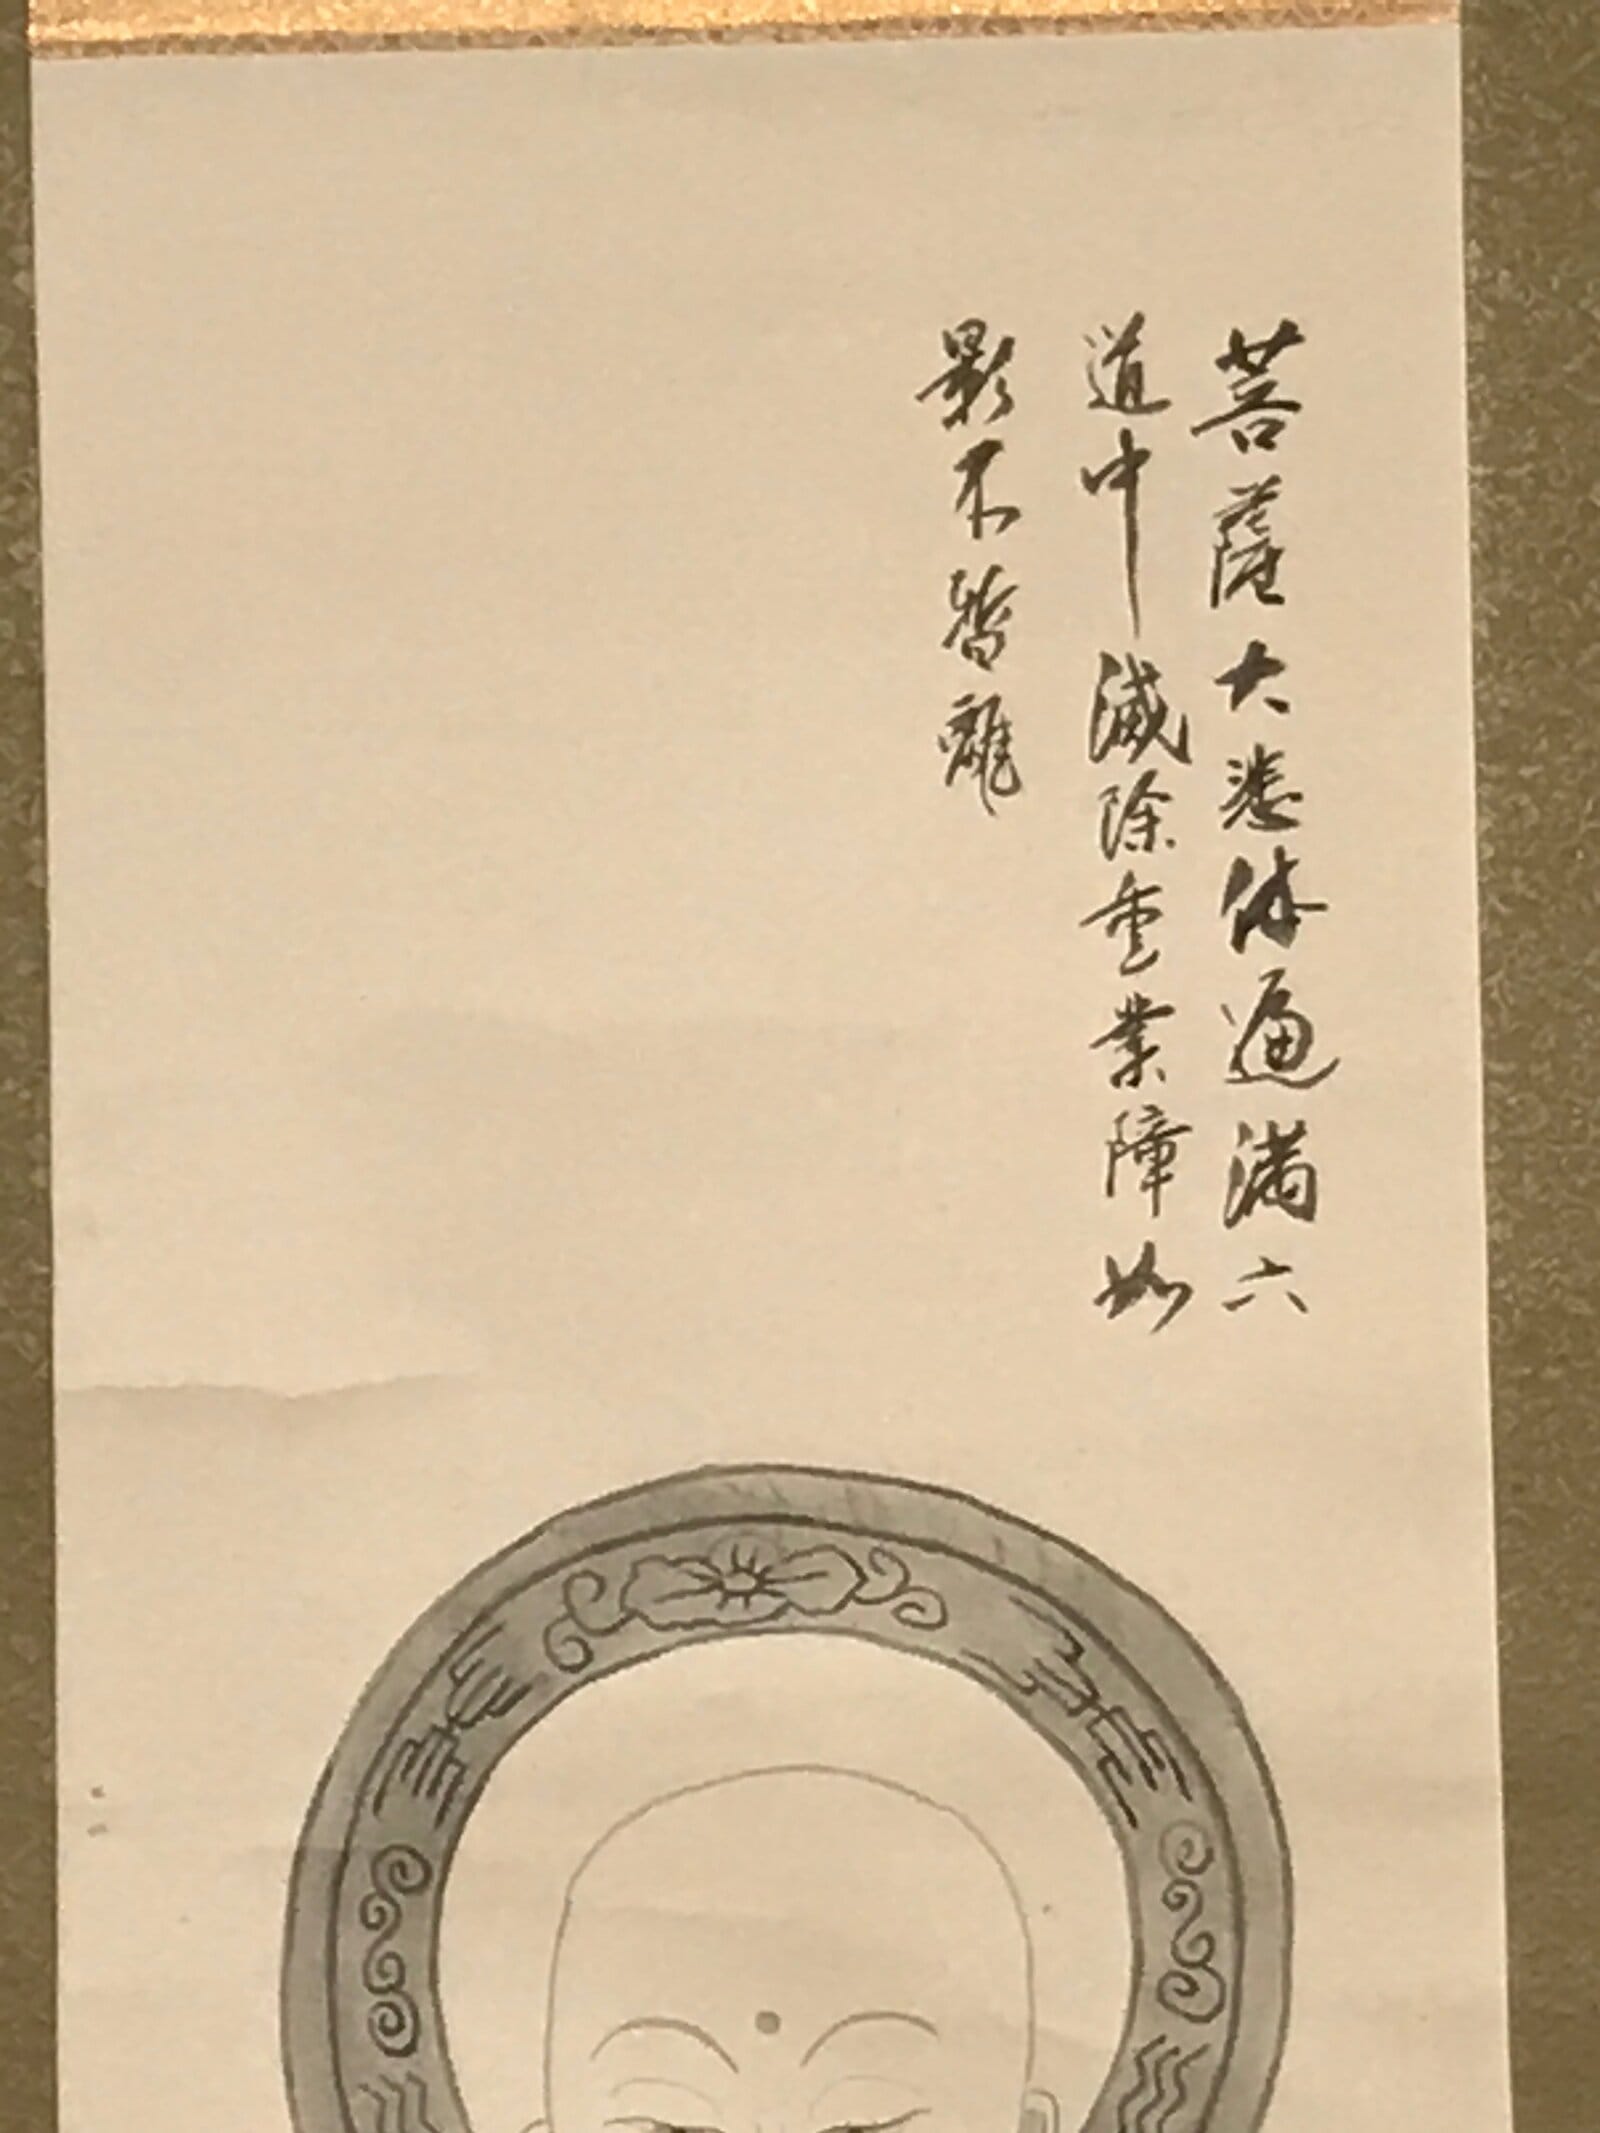 菩薩大悲体遍満六
道中滅除重業障如
影不暫離